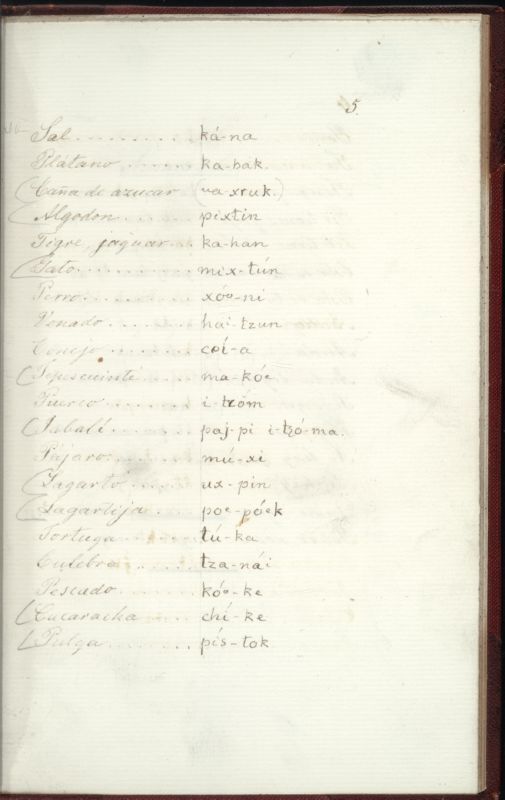 5.
Sal . . . . . . . . ká-na
Plátano . . . . . . ka-hak.
(Caña de azucar (va-xruk.)
(Algodon . . . . . pixtin
Tigre, jaguar . . ka-han
(Gato . . . . . . . . mix-tún
Perro . . . . . . . . xóº-ni
Venado . . . . . . . hai-tzun
Conejo . . . . . . . coí-a
(Tepescuinte . . . ma-kóe
Puerco . . . . . . . i-tzóm
(Jabalí . . . . . . . paj-pi i-tzó-ma.
Pájaro . . . . . . . mú-xi
(Lagarto . . . . . ux-pin
(Lagartija . . . . poe-póek
Tortuga . . . . . . tú-ka
Culebra . . . . . . tza-nái
Pescado . . . . . . kóº-ke
(Cucaracha . . . . chí-ke
(Pulga . . . . . . . pís-tok